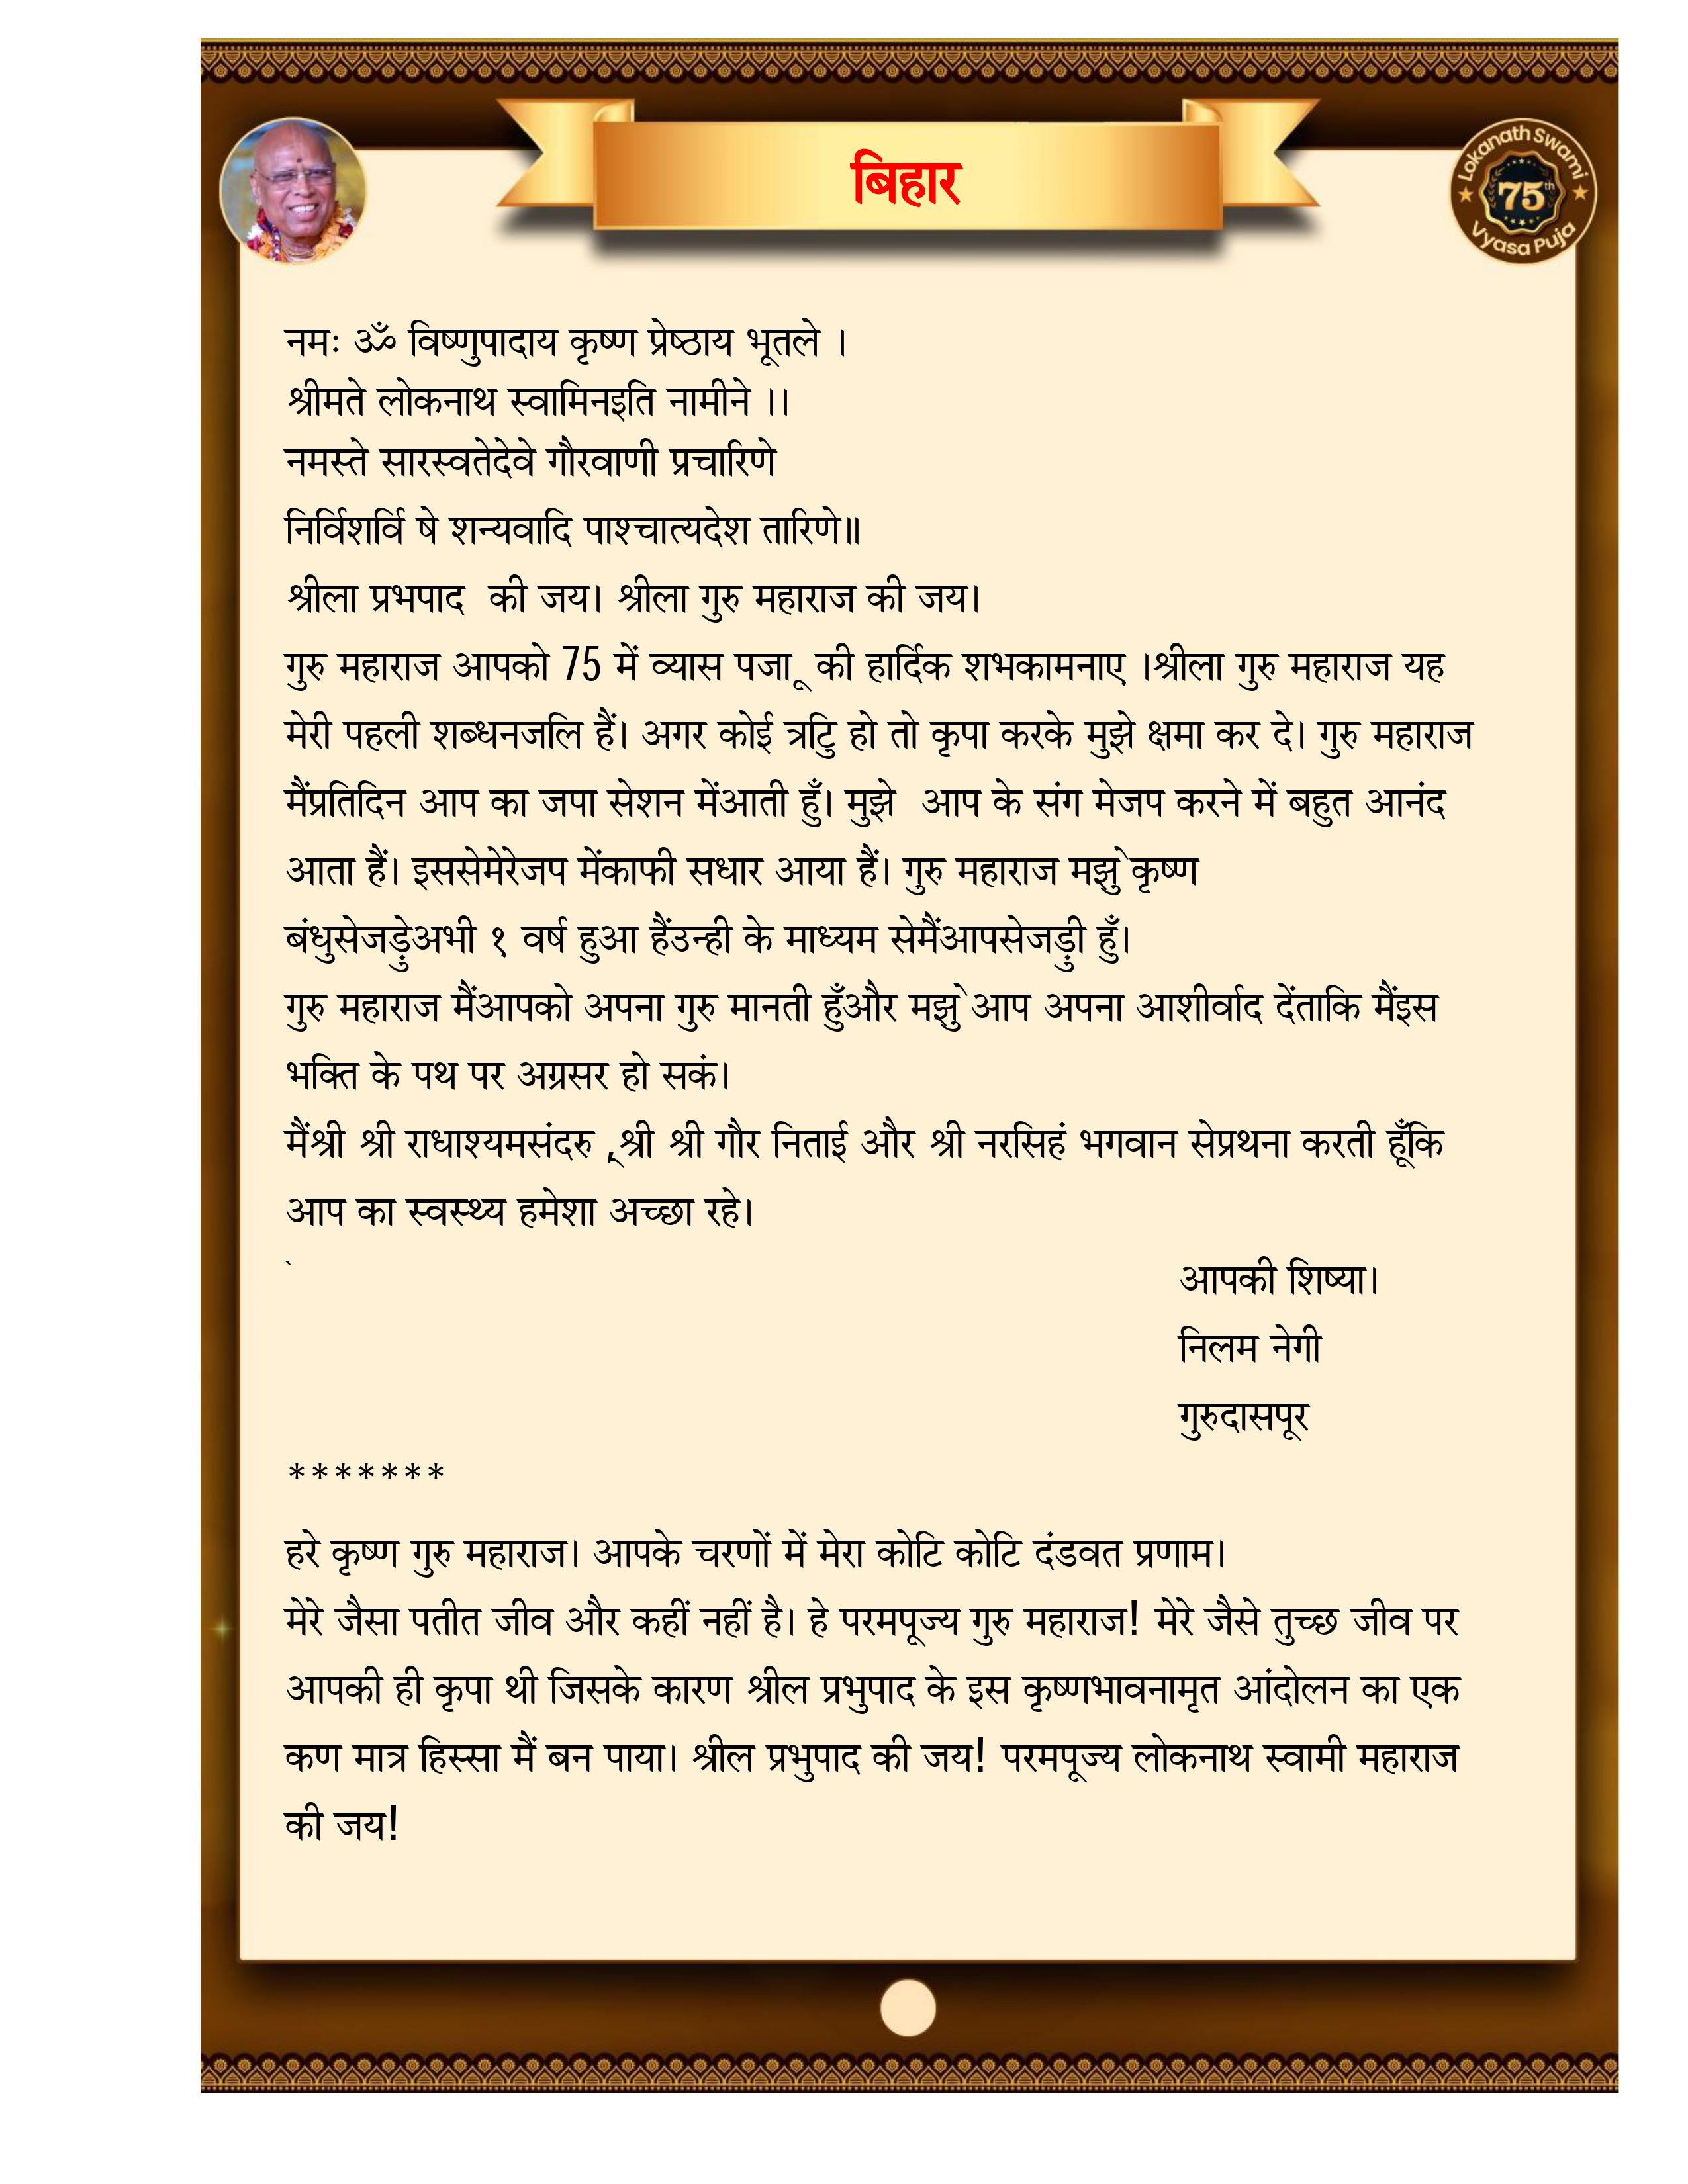 बिहार
Lokanath Swami
75th
Vyasa Puja
नमः ॐ विष्णुपादाय कृष्ण प्रेष्ठाय भूतले ।
श्रीमते लोकनाथ स्वामिनइति नामीने ।।
नमस्ते सारस्वतेदेवे गौरवाणी प्रचारिणे
निर्विशर्वि षे शन्यवादि पाश्चात्यदेश तारिणे॥
श्रीला प्रभपाद की जय। श्रीला गुरु महाराज की जय।
गुरु महाराज आपको 75 में व्यास पजा ू की हार्दिक शभकामनाए ।श्रीला गुरु महाराज यह
मेरी पहली शब्धनजलि हैं। अगर कोई त्रटिु हो तो कृपा करके मुझे क्षमा कर दे। गुरु महाराज
मैंप्रतिदिन आप का जपा सेशन मेंआती हुँ। मुझे आप के संग मेजप करने में बहुत आनंद
आता हैं। इससेमेरेजप मेंकाफी सधार आया हैं। गुरु महाराज मझु े कृष्ण
बंधुसेजड़ुेअभी १ वर्ष हुआ हैंउन्ही के माध्यम सेमैंआपसेजड़ुी हुँ।
गुरु महाराज मैंआपको अपना गुरु मानती हुँऔर मझु े आप अपना आशीर्वाद देंताकि मैंइस
भक्ति के पथ पर अग्रसर हो सकं।
मैंश्री श्री राधाश्यमसंदरु ,् श्री श्री गौर निताई और श्री नरसिहं भगवान सेप्रथना करती हूँकि
आप का स्वस्थ्य हमेशा अच्छा रहे।
`
आपकी शिष्या।
निलम नेगी
गुरुदासपूर
*******
हरे कृष्ण गुरु महाराज। आपके चरणों में मेरा कोटि कोटि दंडवत प्रणाम।
मेरे जैसा पतीत जीव और कहीं नहीं है। हे परमपूज्य गुरु महाराज! मेरे जैसे तुच्छ जीव पर
आपकी ही कृपा थी जिसके कारण श्रील प्रभुपाद के इस कृष्णभावनामृत आंदोलन का एक
कण मात्र हिस्सा मैं बन पाया। श्रील प्रभुपाद की जय! परमपूज्य लोकनाथ स्वामी महाराज
की जय!